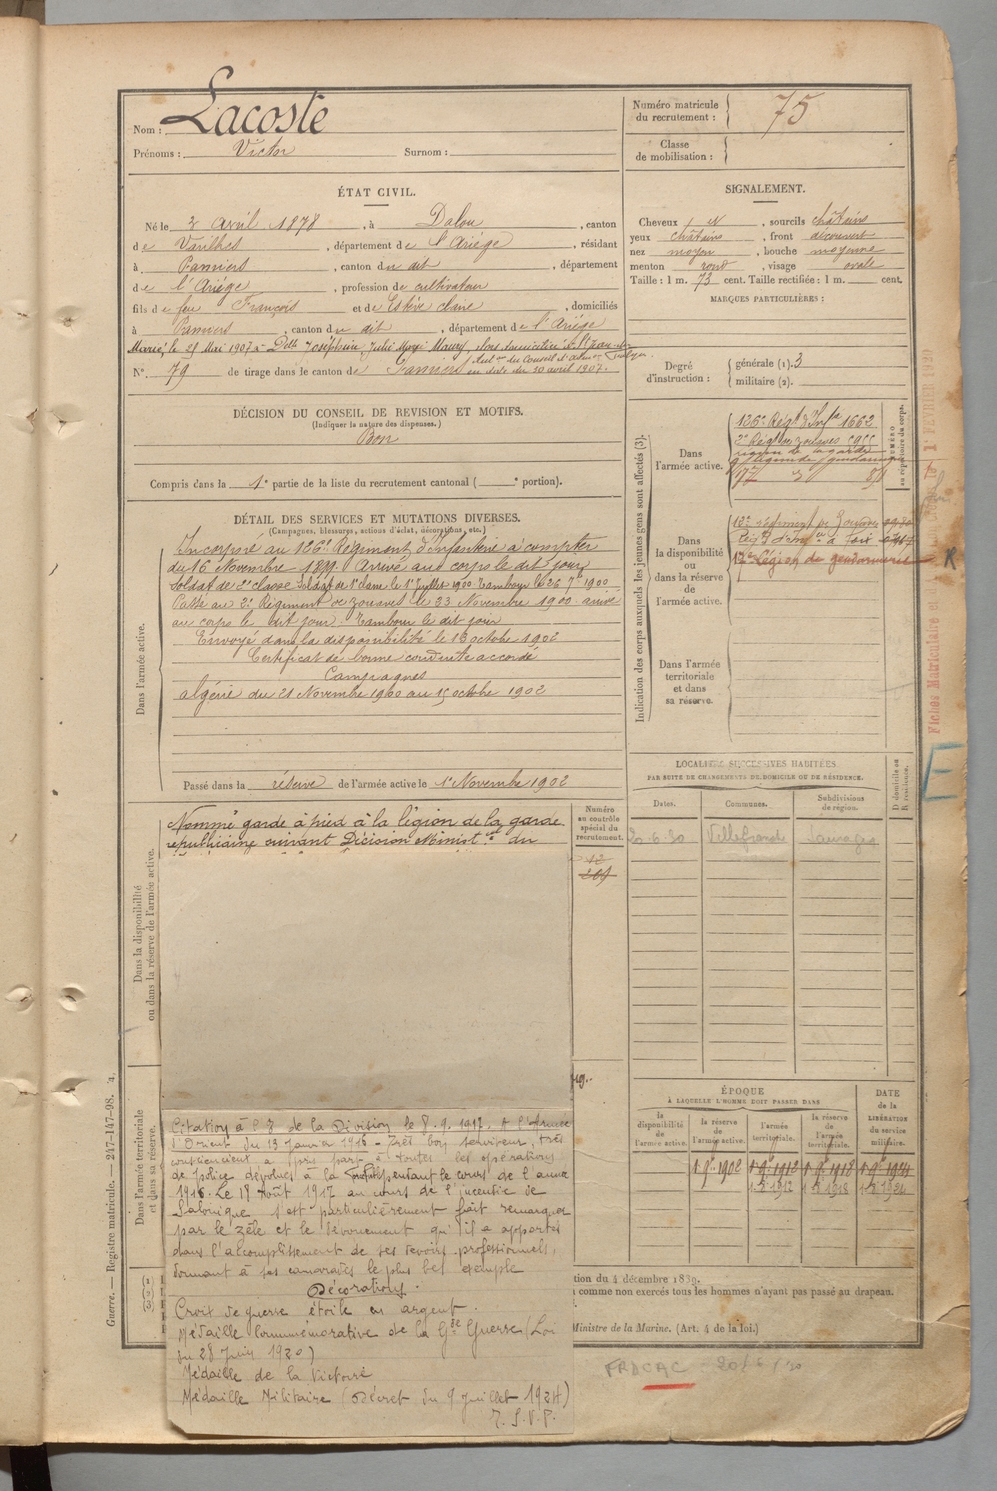 Nom : Lacoste
Prénoms : Victor Surnom :
Numéro matricule du recrutement : 75
Classe de mobilisation :
ÉTAT CIVIL.
Né le 3 avril 1878, à Dalou, canton
de Varilhes, département de l'Ariège, résidant
à Pamiers, canton du dit, département
de l'Ariège, profession de cultivateur
fils de feu François et de Estève Claire, domiciliés
à Pamiers, canton du dit, département de l'Ariège
Marié le 25 Mai 1907 à Delle Joséphine Julie Maury
en date du 30 avril 1907.
N° 79 de tirage dans le canton de Pamiers
SIGNALEMENT.
Cheveux N, sourcils châtains
yeux châtains, front découvert
nez moyen, bouche moyenne
menton rond, visage ovale
Taille : 1 m. 73 cent. Taille rectifiée : 1 m. cent.
MARQUES PARTICULIÈRES :
Degré d'instruction : générale (1). 3
militaire (2).
DÉCISION DU CONSEIL DE REVISION ET MOTIFS.
(Indiquer la nature des dispenses.)
Bon
Compris dans la 1e partie de la liste du recrutement cantonal ( e portion).
DÉTAIL DES SERVICES ET MUTATIONS DIVERSES.
(Campagnes, blessures, actions d'éclat, décorations, etc.)
Dans l'armée active.
Incorporé au 126e Régiment d'Infanterie à compter
du 16 Novembre 1899. Arrivé au corps le dit jour
Soldat de 2e classe Soldat de 1e classe le 1er Juillet 1900. Tambour le 26 7bre 1900
Passé au 2e Régiment de zouaves le 23 Novembre 1900 arrivé
au corps le dit jour. Tambour le dit jour
Envoyé dans la disponibilité le 18 octobre 1902
Certificat de bonne conduite accordé
Campagnes
Algérie du 21 Novembre 1900 au 15 octobre 1902
Passé dans la réserve de l'armée active le 1er Novembre 1902
Dans la disponibilité ou dans la réserve de l'armée active.
Nommé garde à pied à la légion de la garde
républicaine suivant Décision Ministlle du
Numéro au contrôle spécial du recrutement.
269
Indication des corps auxquels les jeunes gens sont affectés (3).
Dans l'armée active.
126e Régt d'Infie 1662
2e Régt de zouaves
NUMÉRO au répertoire du corps.
Dans la disponibilité ou dans la réserve de l'armée active.
régiment de Zouaves
Régt d'Infie à Foix
17e Légion de gendarmerie
Dans l'armée territoriale et dans sa réserve.
Fiches Matriculaire et
1er FÉVRIER
R
E
LOCALITÉS SUCCESSIVES HABITÉES
PAR SUITE DE CHANGEMENTS DE DOMICILE OU DE RÉSIDENCE.
Dates. Communes. Subdivisions de région. D domicile ou R résidence.
20-6-30 Villefranche
ÉPOQUE
À LAQUELLE L'HOMME DOIT PASSER DANS
la disponibilité de l'armée active. la réserve de l'armée active. l'armée territoriale. la réserve de l'armée territoriale. DATE de la LIBÉRATION du service militaire.
1 9bre 1902 1 9bre 1912 1 9bre 1918 1 9bre 1924
1.8.1912 1.8.1918 1.8.1924
Dans l'armée territoriale et dans sa réserve.
Citation à l'O de la Division le 8.9.1917, à l'Armée
d'Orient du 13 Janvier 1918 - Très bon serviteur, très
consciencieux a pris part à toutes les opérations
de police dévolues à la pendant le cours de l'année
1916. Le 18 Août 1917 au cours de l'incendie de
Salonique s'est particulièrement fait remarquer
par le zèle et le dévouement qu'il a apportés
dans l'accomplissement de ses devoirs professionnels,
donnant à ses camarades le plus bel exemple
Décorations.
Croix de guerre étoile en argent.
Médaille Commémorative de la Gde Guerre (Loi
du 28 Juin 1920)
Médaille de la Victoire
Médaille Militaire (Décret du 9 Juillet 1924)
T. S. V. P.
(1)
(2)
(3)
tion du 4 décembre 1889.
comme non exercés tous les hommes n'ayant pas passé au drapeau.
Ministre de la Marine. (Art. 4 de la loi.)
Guerre. — Registre matricule. — 247-147-98.